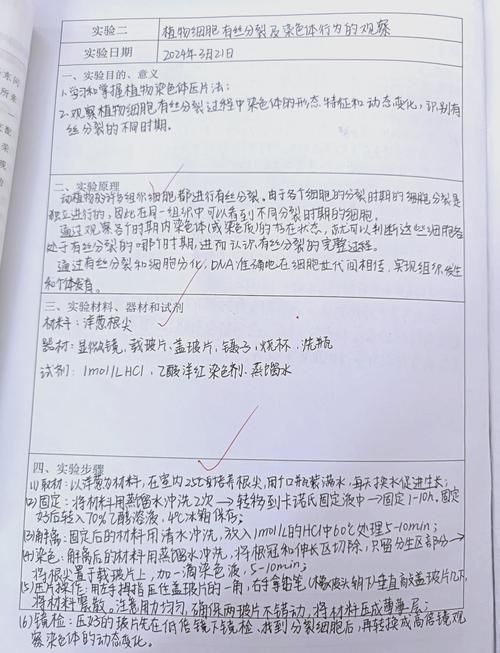 实验二 植物细胞有丝分裂及染色体行为的观察
实验日期 2024年3月21日
一、实验目的、意义
1.学习和掌握植物染色体压片法；
2.观察植物细胞有丝分裂过程中染色体的形态特征和动态变化，识别有
丝分裂的不同时期。
二、实验原理
动植物的许多组织细胞都进行有丝分裂。由于各个细胞的分裂时期的细胞分裂是
独立进行的，因此在同一组织中可以看到不同分裂时期的细胞。
通过观察各个时期内染色体(或染色质)的存在状态，就可以判断这些细胞各
处于有丝分裂的哪个时期，进而认识有丝分裂的完整过程。
通过有丝分裂和细胞分化，DNA准确地在细胞世代间相传，实现组织发生
和个体发育。
三、实验材料、器材和试剂
材料：洋葱根尖
器材：显微镜、载玻片、盖玻片、镊子、烧杯、洗瓶
试剂：1mol/L HCl、乙酸洋红染色剂、蒸馏水
四、实验步骤
(1)取材：以洋葱为材料，在室内25℃培养根尖，用广口瓶装满水，每天换水促进生长；
(2)固定：将材料用蒸馏水冲洗2次→转移到卡诺氏固定液中→固定1-10h.固定
好后转入70%乙醇溶液，4℃冰箱保存；
(3)解离：固定后的材料用清水冲洗，放入1mol/L的HCl中60℃处理5-10min；
(4)染色：解离后的材料用蒸馏水冲洗，将根冠和伸长区切除，只留分生区部分→
将根尖置于载玻片上，加一滴染色液，5-10min；
(5)压片操作：用左手拇指压住盖玻片的一角，右手拿铅笔(橡皮头朝下)垂直向盖玻片几下，
将材料震散。注意用力均匀，确保两玻片不错动，将材料压成薄薄层；
(6)镜检：压好的玻片先在低倍镜下镜检，找到分裂细胞后，再转换成高倍镜观
察染色体的动态变化。